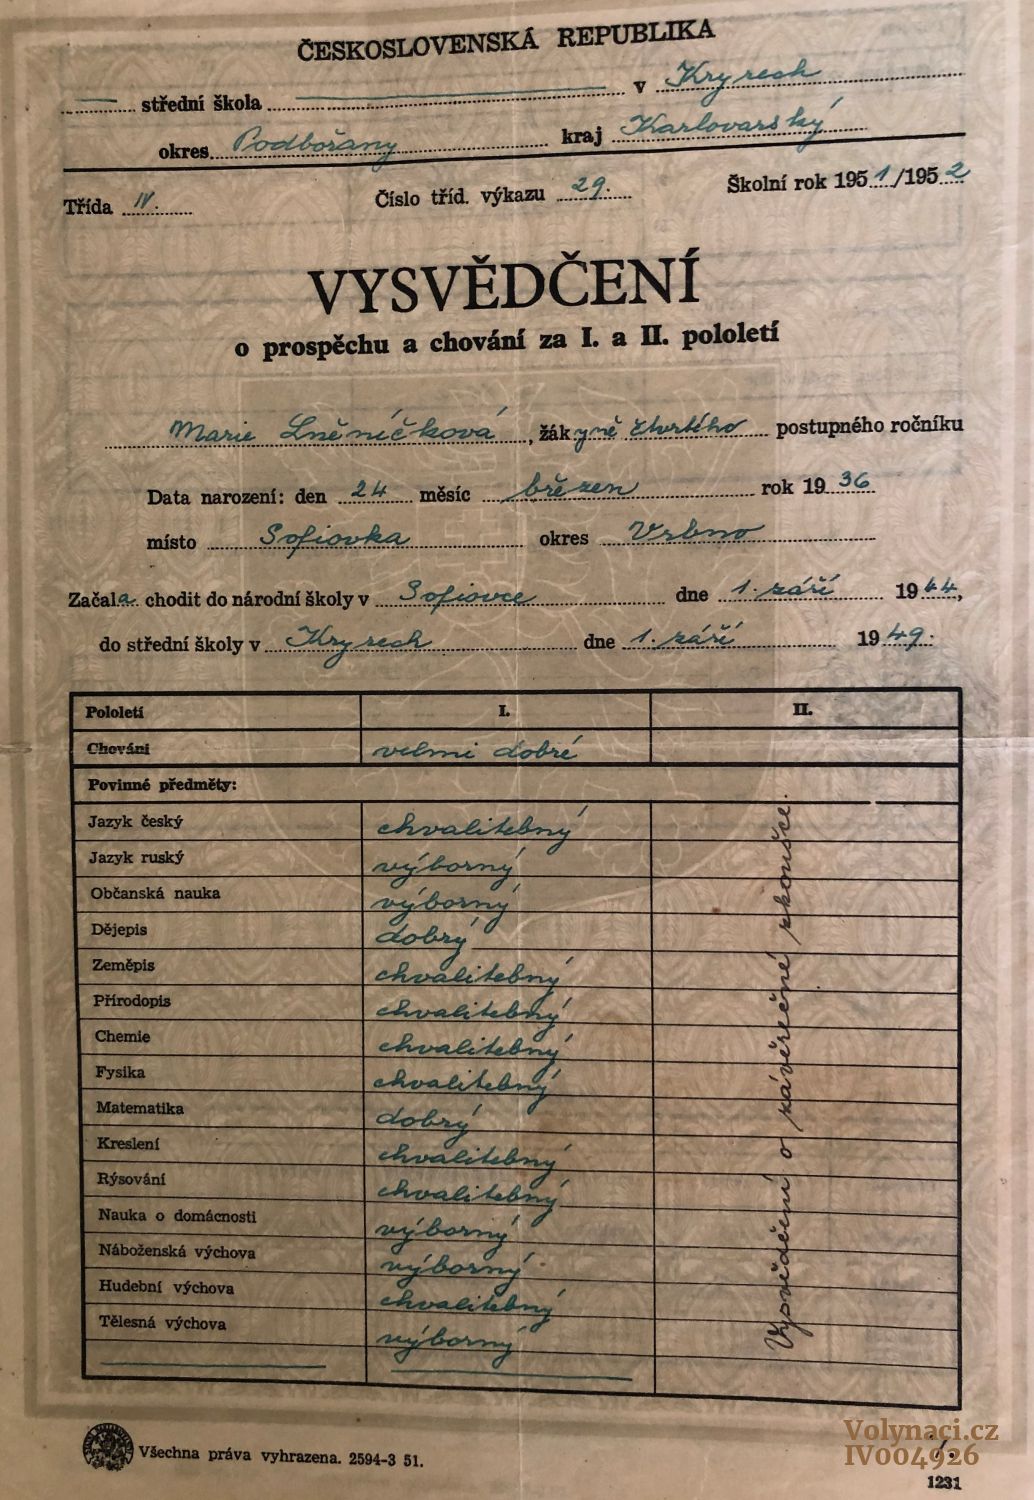 ČESKOSLOVENSKÁ REPUBLIKA
střední škola v Kryrech
okres Podbořany kraj Karlovarský
Třída IV. Číslo tříd. výkazu 29. Školní rok 1951/1952
VYSVĚDČENÍ
o prospěchu a chování za I. a II. pololetí
Marie Lněníčková, žákyně čtvrtého postupného ročníku
Data narození: den 24 měsíc březen rok 1936
místo Sofiovka okres Vrbno
Začala chodit do národní školy v Sofiovce dne 1. září 1944,
do střední školy v Kryrech dne 1. září 1949.
Pololetí I. II.
Chování velmi dobré
Povinné předměty:
Jazyk český chvalitebný
Jazyk ruský výborný
Občanská nauka výborný
Dějepis dobrý
Zeměpis chvalitebný
Přírodopis chvalitebný
Chemie chvalitebný
Fysika chvalitebný
Matematika dobrý
Kreslení chvalitebný
Rýsování chvalitebný
Nauka o domácnosti výborný
Náboženská výchova výborný
Hudební výchova chvalitebný
Tělesná výchova výborný
Vysvědčení o závěrečné zkoušce.
Všechna práva vyhrazena. 2594-3 51.
Volynaci.cz
IV004926
1231